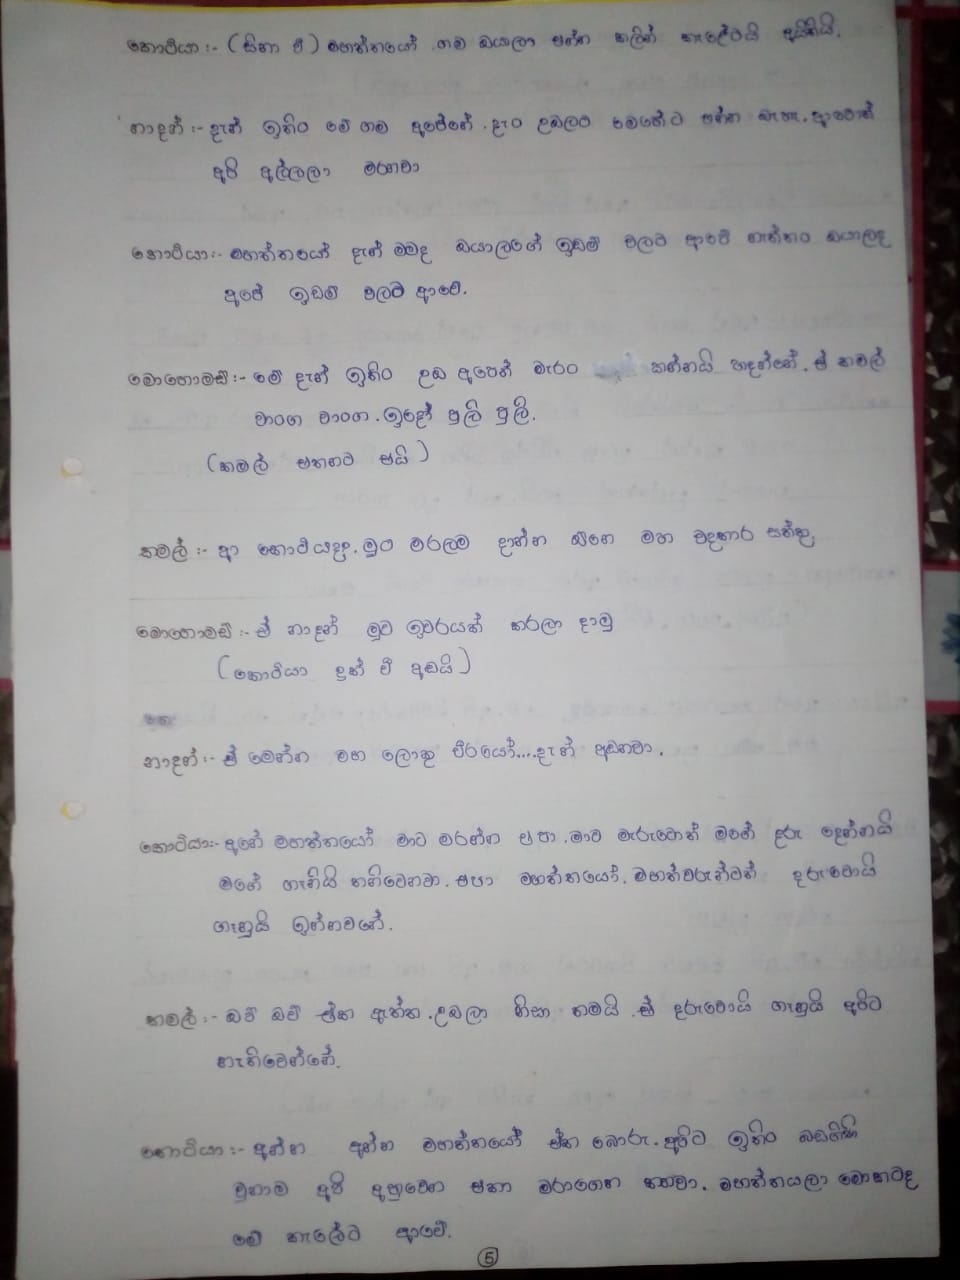 කොටියා :- (සිනා වී) මහත්තයෝ ගම ඔයාලා එන්න කලින් කැලේටයි අයිතියි.
නාදන් :- දැන් ඉතිං මේ ගම අපේනේ. දැං උඹලට මෙහේට එන්න බැහැ. ආවොත්
අපි අල්ලලා මරනවා
කොටියා :- මහත්තයෝ දැන් මමද ඔයාලගේ ඉඩම් වලට ආවේ නැත්තං ඔයාලද
අපේ ඉඩම් වලට ආවේ.
මොහොමඩ් :- මේ දැන් ඉතිං උඹ අපෙන් මැරං කන්නයි හදන්නේ. ඒ කමල්
වාංග වාංග. ඉදෝ පුලි පුලි.
(කමල් එතනට එයි)
කමල් :- ආ කොටියදෑ. මුං මරලම දාන්න ඕනෙ මහ වදකාර සත්තු
මොහොමඩ් :- ඒ නාදන් මූව ඉවරයක් කරලා දාමු
(කොටියා දුක් වී අඬයි)
නාදන් :- ඒ මෙන්න මහ ලොකු වීරයෝ....දැන් අඬනවා.
කොටියා :- අනේ මහත්තයෝ මාව මරන්න එපා. මාව මැරුවොත් මගේ දරු දෙන්නයි
මගේ ගෑනියි තනිවෙනවා. එපා මහත්තයෝ. මහත්වරුන්ටත් දරුවොයි
ගෑනුයි ඉන්නවනේ.
කමල් :- ඔව් ඔව් ඒක ඇත්ත. උඹලා නිසා තමයි ඒ දරුවොයි ගෑනුයි අපිට
නැතිවෙන්නේ.
කොටියා :- අන්න අන්න මහත්තයෝ ඒක බොරු. අපිට ඉතිං බඩගිනි
වුනාම අපි අහුවෙන එකා මරාගෙන කනවා. මහත්තයලා මොකටද
මේ කැලේට ආවේ.
5